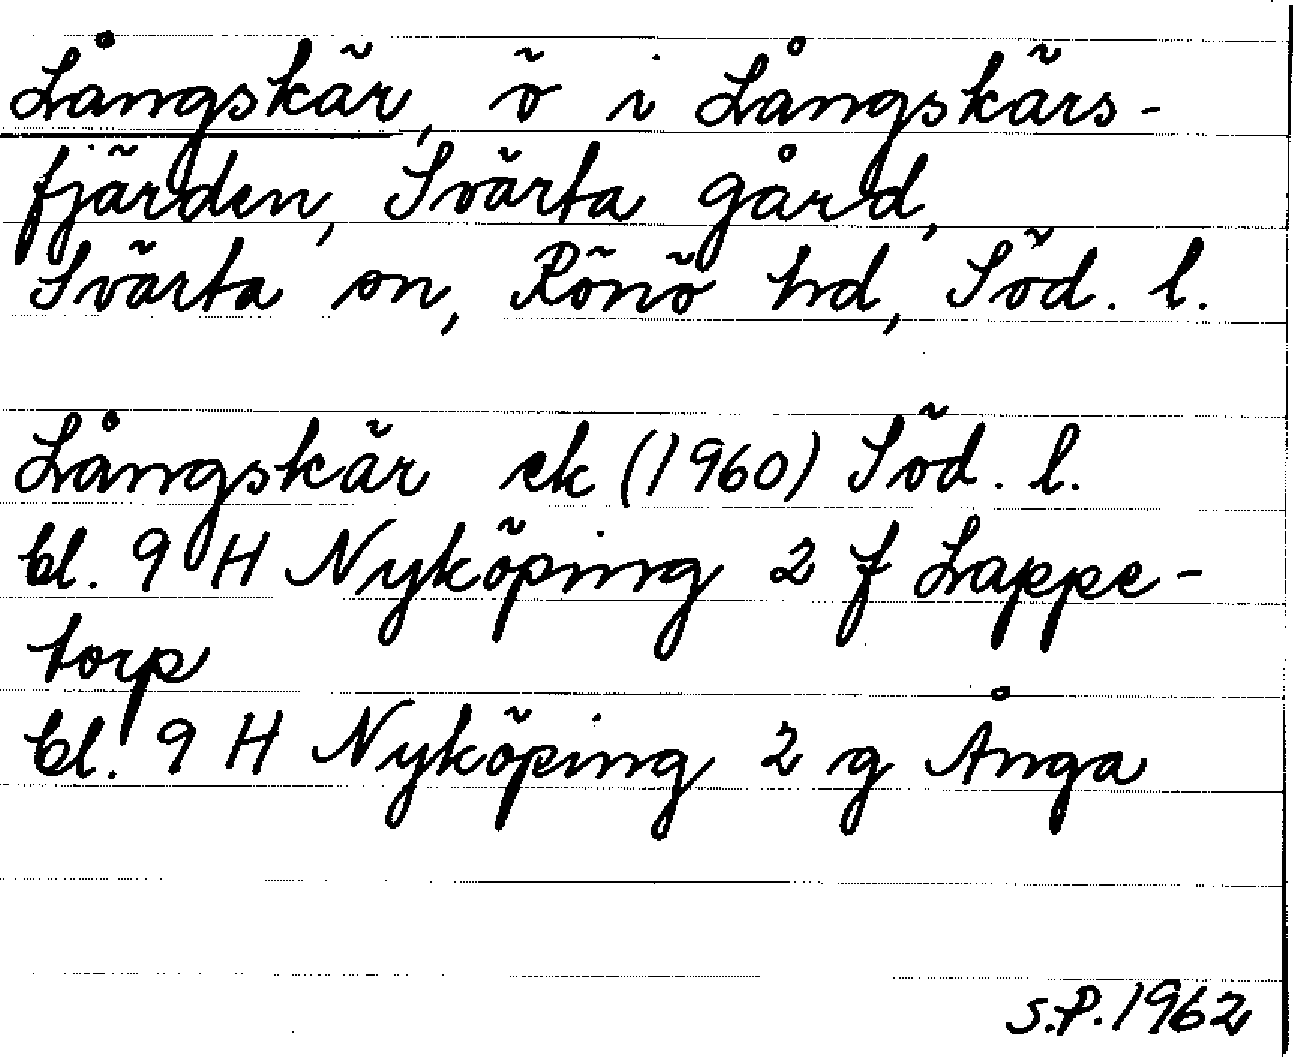 Långskär, ö i Långskärs-
fjärden, Svärta gård,
Svärta sn, Rönö hd, Söd. l.
Långskär ek (1960) Söd. l.
bl. 9 H Nyköping 2 f Lappe-
torp
bl. 9 H Nyköping 2 g Ånga
S.P. 1962